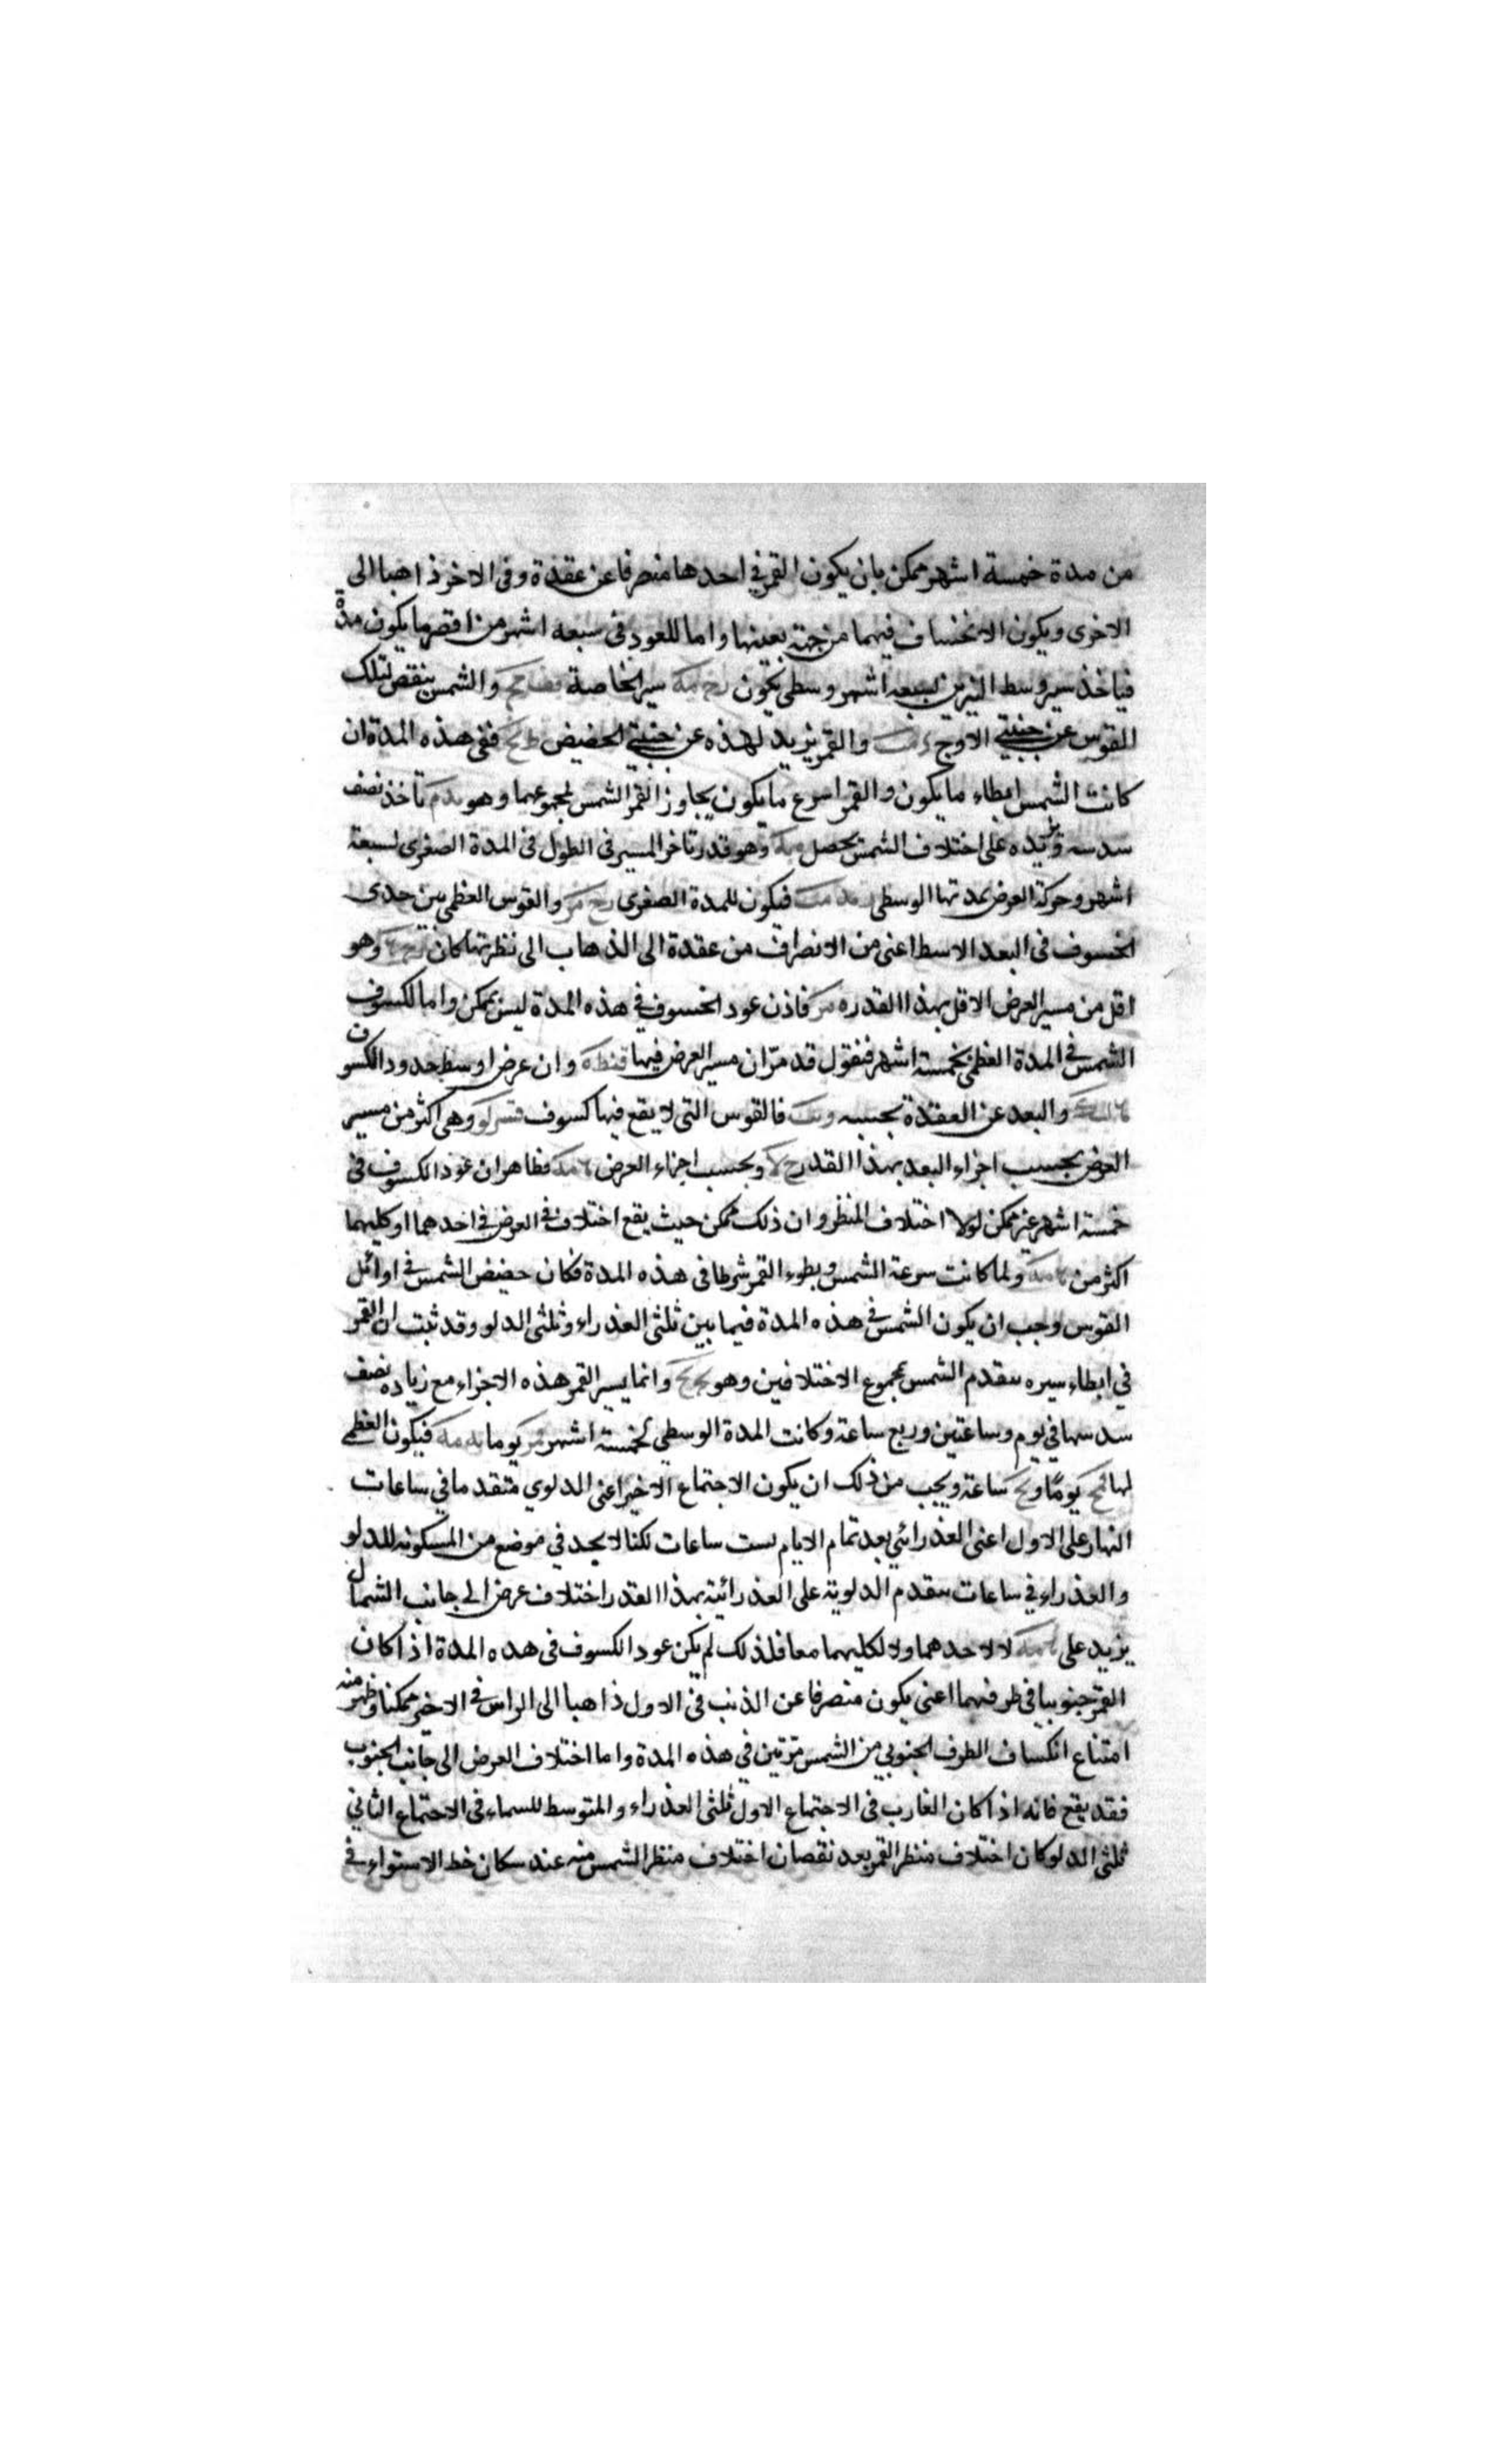 من مدة خمسة اشهر ممكن بان يكون القمر في احدها منصرفا عن عقدة وفى الاخر ذاهبا الى
الاخرى ويكون الانخساف فيهما من جهة بعينها واما للعود فى سبعه اشهر من اقصر ما يكون مدة
فياخذ سير وسط النيرين لسبعه اشهر وسطى يكون سير الخاصة والشمس ينقص لتلك
القوس عن جنبتى الاوج والقمر يزيد لهذه عن جنبتى الحضيض ففى هذه المدة ان
كانت الشمس ابطاء ما يكون والقمر اسرع ما يكون يجاوز القمر الشمس لمجموعهما وهو تاخذ نصف
سدسه ونزيده على اختلاف الشمس يحصل وهو قدر تاخر المسير فى الطول فى المدة الصغرى لسبعة
اشهر وحركة العرض بمدتها الوسطى فيكون للمدة الصغرى والقوس العظمى بين حدى
الخسوف فى البعد الاسط اعنى من الانصراف من عقدة الى الذهاب الى نظيرتها كان وهو
اقل من مسير العرض الاقل بهذا القدر فاذن عود الخسوف في هذه المدة ليس بممكن واما لكسوف
الشمس في المدة العظمى بخمسة اشهر فنقول قد مرّ ان مسير العرض فيها قنط ه وان عرض اوسط حدود الكسوف
والبعد عن العقدة بحسبه فالقوس التى لا يقع فيها كسوف وهى اكثر من مسير
العرض بحسب اجزاء البعد بهذا القدر وبحسب اجزاء العرض فظاهر ان عود الكسوف في
خمسة اشهر غير ممكن لولا اختلاف المنظر وان ذلك ممكن حيث يقع اختلاف في العرض في احدهما او كليهما
اكثر من ولما كانت سرعة الشمس وبطوء القمر شرطا فى هذه المدة فكان حضيض الشمس في اوائل
القوس وجب ان يكون الشمس في هذه المدة فيما بين ثلثى العذراء وثلثى الدلو وقد ثبت ان القمر
في ابطاء سيره يتقدم الشمس بمجموع الاختلافين وهو وانما يسير القمر هذه الاجزاء مع زياده نصف
سدسها في يوم وساعتين وربع ساعة وكانت المدة الوسطى لخمسة اشهر يوما فيكون العظمى
لها قمح يومًا و ساعة ويجب من ذلك ان يكون الاجتماع الاخير اعنى الدلوي متقدما في ساعات
النهار على الاول اعنى العذرائي بعد تمام الايام بست ساعات لكنا لا يجد في موضع من المسكونه للدلو
والعذراء في ساعات يتقدم الدلوية على العذرائية بهذا القدر اختلاف عرض الى جانب الشمال
يزيد على لا لاحدهما ولا لكليهما معا فلذلك لم يكن عود الكسوف فى هذه المدة اذا كان
القمر جنوبيا في طرفيهما اعنى يكون منصرفا عن الذنب في الاول ذاهبا الى الراس في الاخير ممكنا وظهر منه
امتناع انكساف الطرف الجنوبي من الشمس مرّتين في هذه المدة واما اختلاف العرض الى جانب الجنوب
فقد يقع فانه اذا كان الغارب فى الاجتماع الاول ثلثى العذراء والمتوسط للسماء فى الاجتماع الثانى
ثلثى الدلو كان اختلاف منظر القمر بعد نقصان اختلاف منظر الشمس منه عند سكان خط الاستواء في